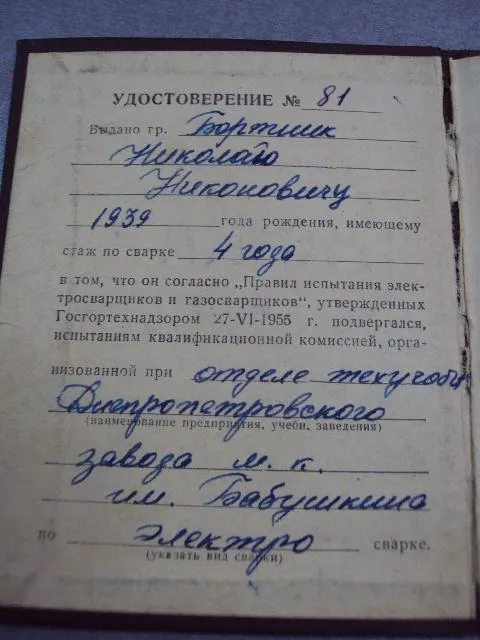 УДОСТОВЕРЕНИЕ № 81
Выдано гр. Бортник
Николаю
Никоновичу
1939 года рождения, имеющему
стаж по сварке 4 года
в том, что он согласно „Правил испытания элек-
тросварщиков и газосварщиков“, утвержденных
Госгортехнадзором 27-VI-1955 г. подвергался,
испытаниям квалификационной комиссией, орга-
низованной при отделе техучобы
Днепропетровского
(наименование предприятия, учебн. заведения)
завода м. к.
им. Бабушкина
по электро сварке.
(указать вид сварки)